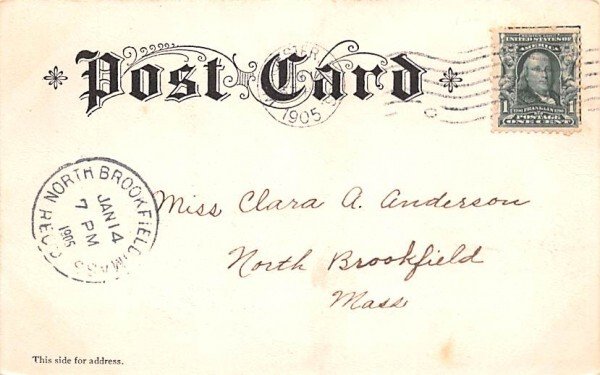 Post Card
1905
UNITED STATES OF
AMERICA
1 FRANKLIN 1
POSTAGE
ONE CENT
NORTH BROOKFIELD MASS
JAN 14
7 PM
1905
REC'D
Miss Clara A. Anderson
North Brookfield
Mass
This side for address.